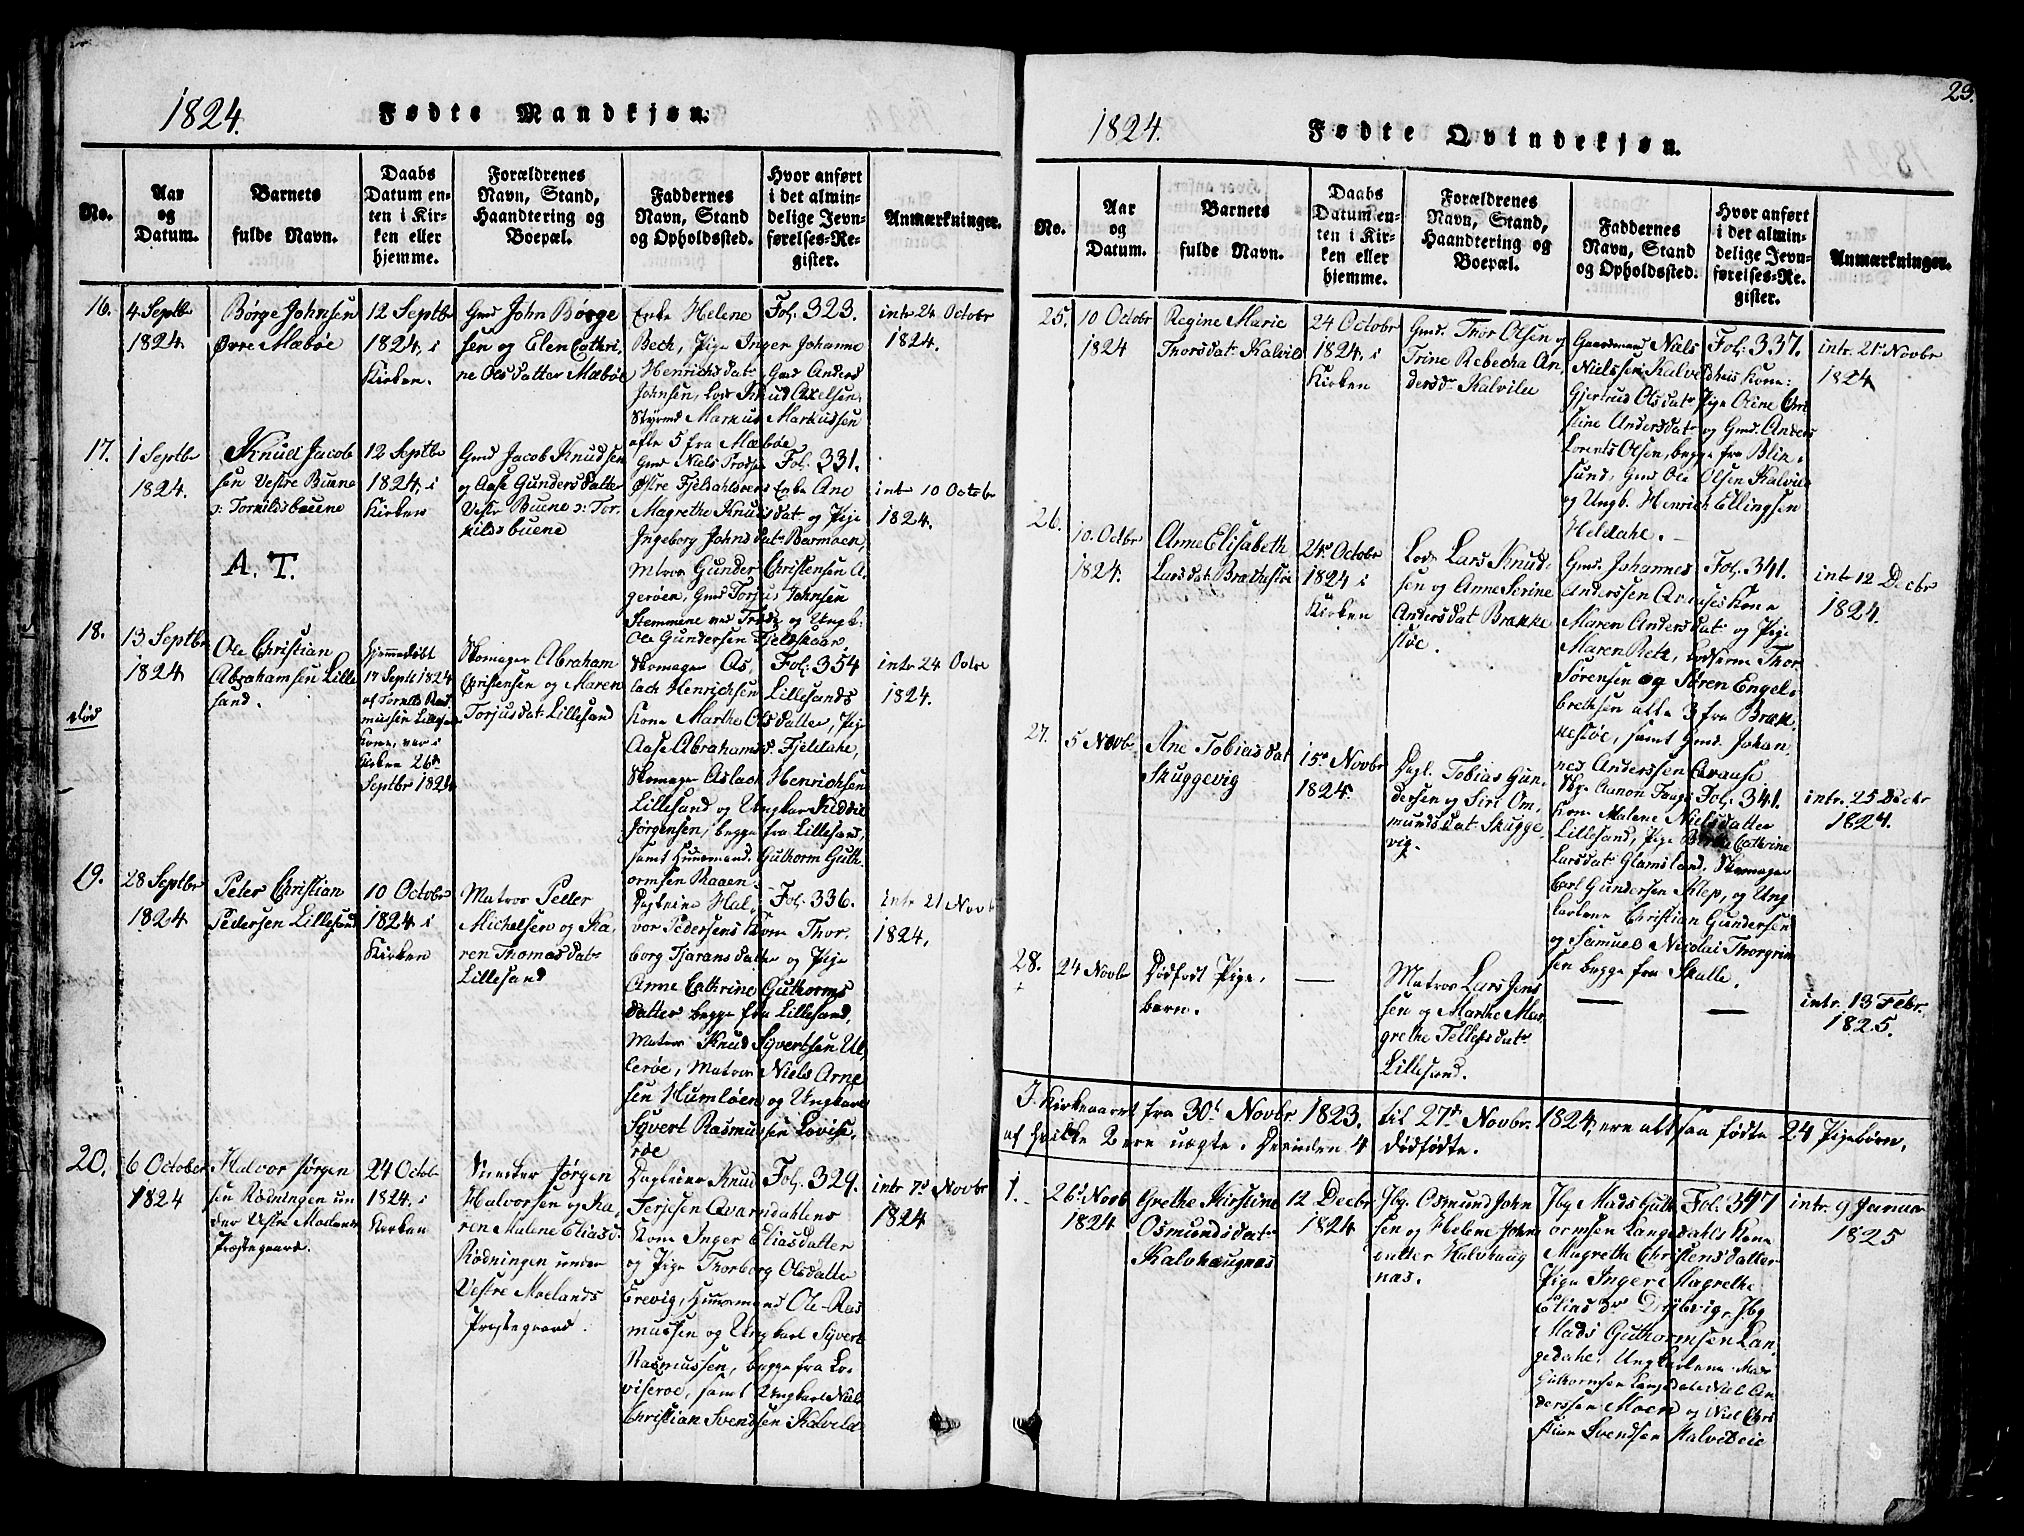 1824.
Fødte Mandkjøn.
No.
Aar
og
Datum.
Barnets
fulde Navn.
Daabs
Datum en-
ten i Kir-
ken eller
hjemme.
Forældrenes
Navn, Stand,
Haandtering og
Boepæl.
Faddernes
Navn, Stand
og Opholdssted.
Hvor anført
i det almin-
delige Jevn-
førelses-Re-
gister.
Anmærkninger.
16.
4 Septbr
1824
Børge Johnsen
Øvre Mæbøe
12 Septbr
1824, i
Kirken.
Gmd John Børge
sen og Elen Cathri,
ne Olsdatter Mæbøe
Enke Helene
Bech, Pige Inger Johanne
Henrichsdat, Gmd Anders
Johnsen, Lods Knud Axelsen,
Styrmd Markus Markussen
alle 5 fra Mæbøe
Fol. 323.
intr 24 Octobr
1824.
17.
1 Septbr
1824.
Knud Jacob
sen Vestre Buene
ɔ: Torkildsbuene
A. T.
12 Septbr
1824, i
Kirken
Gmd Jacob Knudsen
og Aase Gunders datter
Vestr Buene ɔ: Tor
kildsbuene
Gmd Niels
Østre Fjeldahlsvens Enke Ane
Magrethe Knudsdat og Pige
Ingeborg Johnsdat Barmoen,
Matros Gunder Christensen A.
gerøen, Gmd Torjus Johnsen
Stemmene ved og Ungk.
Ole Gundersen Fjeldskaar.
Fol. 331.
intr 10 Octobr
1824.
18.
13 Septbr
1824
død
Ole Christian
Abrahamsen Lille
sand.
hjemmedøbt
17 Septb 1824
af Ras
mussen Lillesands
Kone, var i
Kirken 26de
Septbr 1824
Skomager Abraham
Christensen og Maren
Torjusdat: Lillesand
Skomager As
lach Henrichsen Lillesands
Kone Marthe Olsdatter, Pige
Aase Abrahamsd. Fjeldahl,
Skomager Aslach Henrichsen
Lillesand og Ungkar
Jørgensen, begge fra Lillesand
samt Huusmand Guthorm Guth.
ormsen Raaen.
Fol. 354
intr. 24 Octbr
1824.
19.
28 Septbr
1824
Peter Christian
Pedersen Lillesand
10 Octobr
1824 i
Kirken
Matros Peder
Michelsen og Ka,
ren Thomasdatr
Lillesand
Dagleier Hal,
vor Pedersens Kone Thor,
borg Tjaransdatter og Pige
Anne Cathrine Guthorms
datter begge fra Lillesand,
Matros Knud Syvertsen Ul,
lerøe, Matros Niels Arne
sen Humløen og Ungkarl
Syvert Rasmussen Lovise,
røe
Fol. 336.
intr 21 Novb
1824.
20.
6 October
1824
Halvor Jørgen
sen Rødningen un
der Vestre Molands
Præstegaard.
24 Octob
1824, i
Kirken
Jørgen
Halvorsen og Ka
ren Malene Eliasd.
Rødningen under
Vestre Moelands
Præstegaard.
Dagleier Knud
Terjesen Qvarndahlens
Kone Inger Eliasdatter
og Pige Thorborg Olsdatter
Trevig, Huusmand Ole Ras
mussen og Ungkarl Syvert
Rasmussen, begge fra Lo
viserøe, samt Ungkarl Niel
Christian Svendsen Kalvild
Fol. 329.
intr 7d Novbr
1824
23.
1824.
Fødte Qvindekjøn.
No.
Aar
og
Datum.
Barnets
fulde Navn.
Daabs
Datum en-
ten i Kir-
ken eller
hjemme.
Forældrenes
Navn, Stand,
Haandtering og
Boepæl.
Faddernes
Navn, Stand
og Opholdssted.
Hvor anført
i det almin-
delige Jevn-
førelses-Re-
gister.
Anmærkninger.
25.
10 Octobr
1824
Regine Marie
Thorsdat: Kalvild
24 Octobr
1824, i
Kirken
Gmd. Thor Olsen og
Trine Rebecha An,
dersdr Kalvild
Gaardmand Niels
Nielssen Kalvelds Kone:
Gjertrud Olsdatr Pige Oline Chri
stine Andersdatr og Gmd. Anders
Lorents Olsen, begge fra Blin,
sund, Gmd Ole Olsen Kalvild
og Ungk. Henrich Ellingsen
Heldahl.
Fol. 337.
intr. 21 Novbr
1824
26.
10. Octbr
1824.
Anne Elisabeth
Larsdat: Brækkestøe
24de Octobr
1824 i
Kirken
Lods Lars Knud,
sen og Anne Serine
Andersdat Brække
støe.
Gmd. Johannes
Anderssen Krauses Kone
Maren Andersdatr og Pige
Maren, Lodserne Thor
Sørensen og Søren Engel,
brethsen alle 3 fra Bræk,
kestøe, samt Gmd. Johan
nes Anderssen Krause.
Fol. 341.
intr 12 Decbr
1824.
27.
5 Novb
Ane Tobiasdat
Skuggevig
15de Novbr
1824.
Dagl. Tobias Gun,
dersen og Siri Om,
mundsdat: Skugge,
vig.
Kone Malene Nielsdatter
Lillesand, Pige Cathrine
Larsdat Glamsland, Skomager
Carl Gundersen Klep, og Ung
karlene Christian Gundersen
og Samuel Nicolai Thorgrim
sen begge fra Skalle.
Fol. 341.
intr. 25 Decbr
1824.
28.
24 Novbr
Dødfødt Pige,
barn.
—
Matros Lars Jens
sen og Marthe Mar,
grethe Tellefsdatr
Lillesand.
—
—
intr. 13 Febr.
1825.
I Kirkeaaret fra 30d Novbr. 1823. til 27de Novbr. 1824, ere altsaa fødte 24 Pigebørn,
af hvilke 2 ere uægte. Desuden 4 dødfødte.
1.
26de Novb
1824
Grethe Kirstine
Osmundsdatr
Kalvhaugnæs
12 Decbr
1824
Ibg. Osmund John
sen og Helene Johns
datter Kalvhaug
næs.
Ibg Mads Guth
ormsen Langedahls Kone
Magrethe Christensdatter
Pige Inger Magrethe
Eliasdr Dybvig, Ibg
Mads Guthormsen Lan,
gedahl, Ungkarlene Mads
Guthormsen Langedal Niel An
derssen Moen og Niel Chri
stian Svendsen Kalvild
Fol. 347
intr. 9 Januar
1825